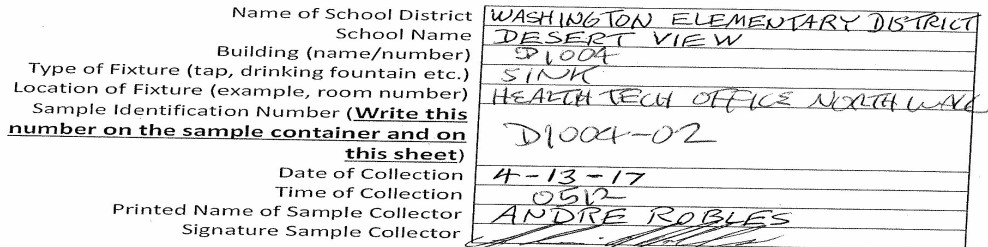 Name of School District WASHINGTON ELEMENTARY DISTRICT
School Name DESERT VIEW
Building (name/number) D1004
Type of Fixture (tap, drinking fountain etc.) SINK
Location of Fixture (example, room number) HEALTH TECH OFFICE NORTH WALL
Sample Identification Number (Write this
number on the sample container and on D1004-02
this sheet)
Date of Collection 4-13-17
Time of Collection 0512
Printed Name of Sample Collector ANDRE ROBLES
Signature Sample Collector